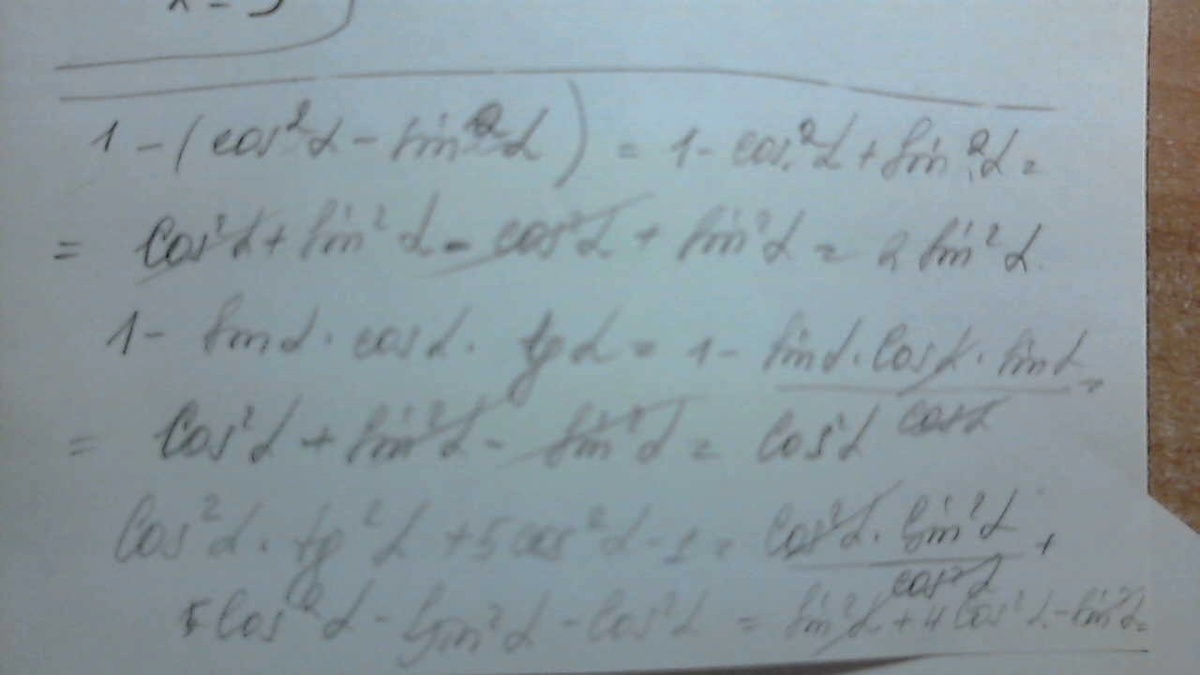 x = 5
1 - (cos²α - sin²α) = 1 - cos²α + sin²α =
= cos²α + sin²α - cos²α + sin²α = 2 sin²α
1 - sinα · cosα · tgα = 1 - sinα · cosα · sinα / cosα =
= cos²α + sin²α - sin²α = cos²α
cos²α · tg²α + 5 cos²α - 1 = cos²α · sin²α / cos²α +
5 cos²α - sin²α - cos²α = sin²α + 4 cos²α - sin²α =